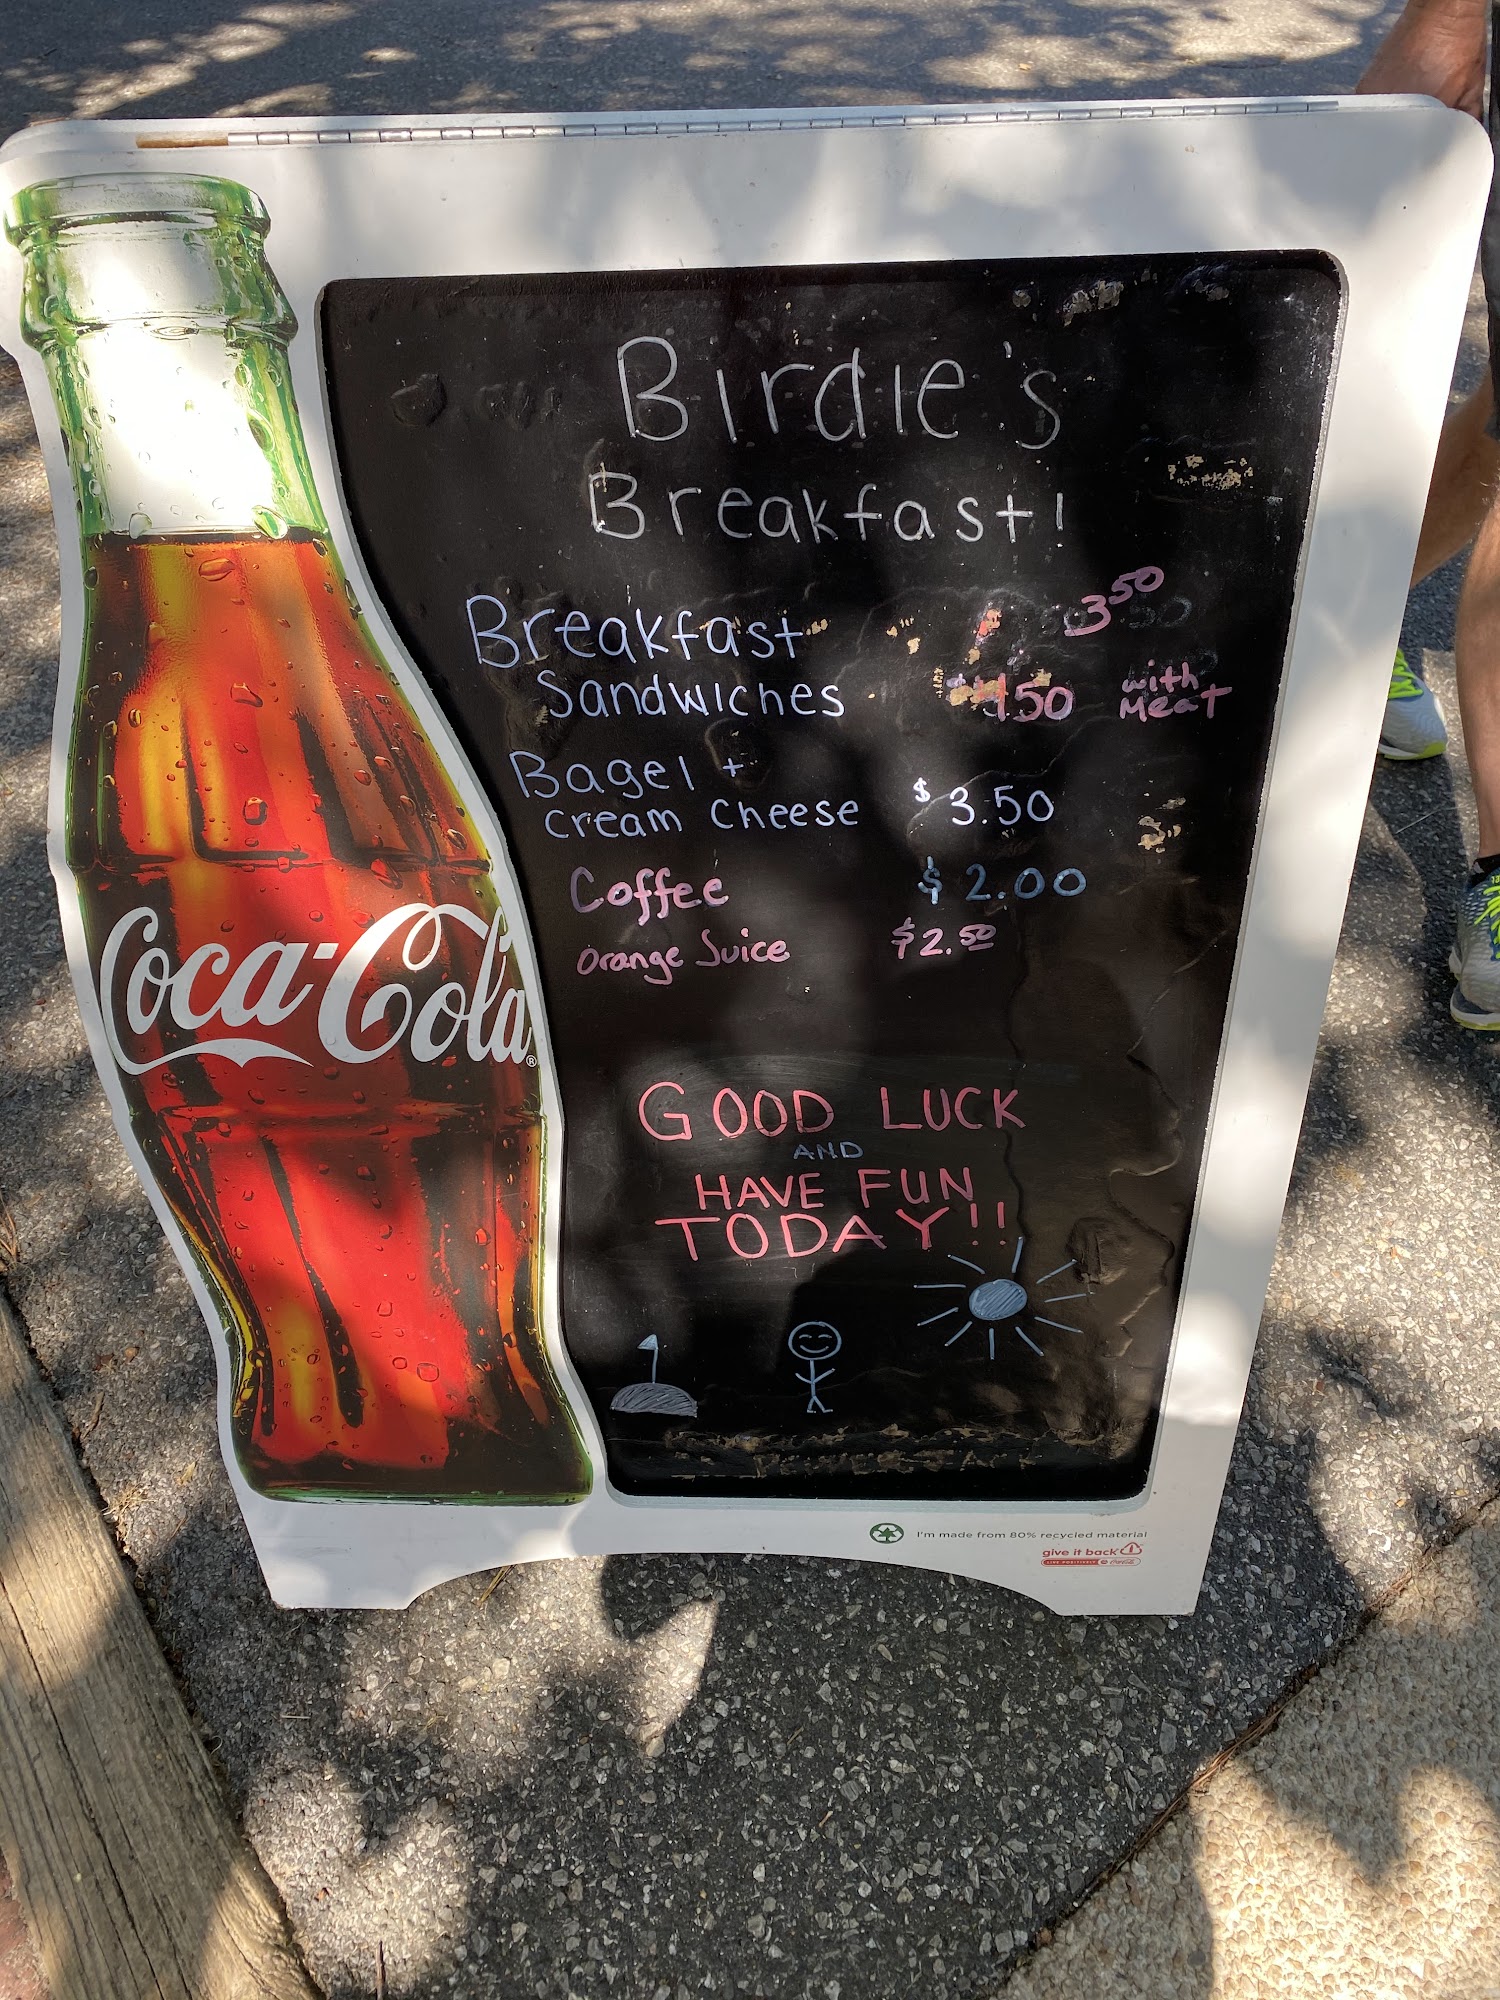 Birdie's
Breakfast!
Breakfast 3.50
Sandwiches 4.50 with Meat
Bagel +
cream cheese $3.50
Coffee $2.00
Orange Juice $2.50
Coca-Cola®
GOOD LUCK
AND
HAVE FUN
TODAY!!
I'm made from 80% recycled material
give it back
LIVE POSITIVELY Coca-Cola